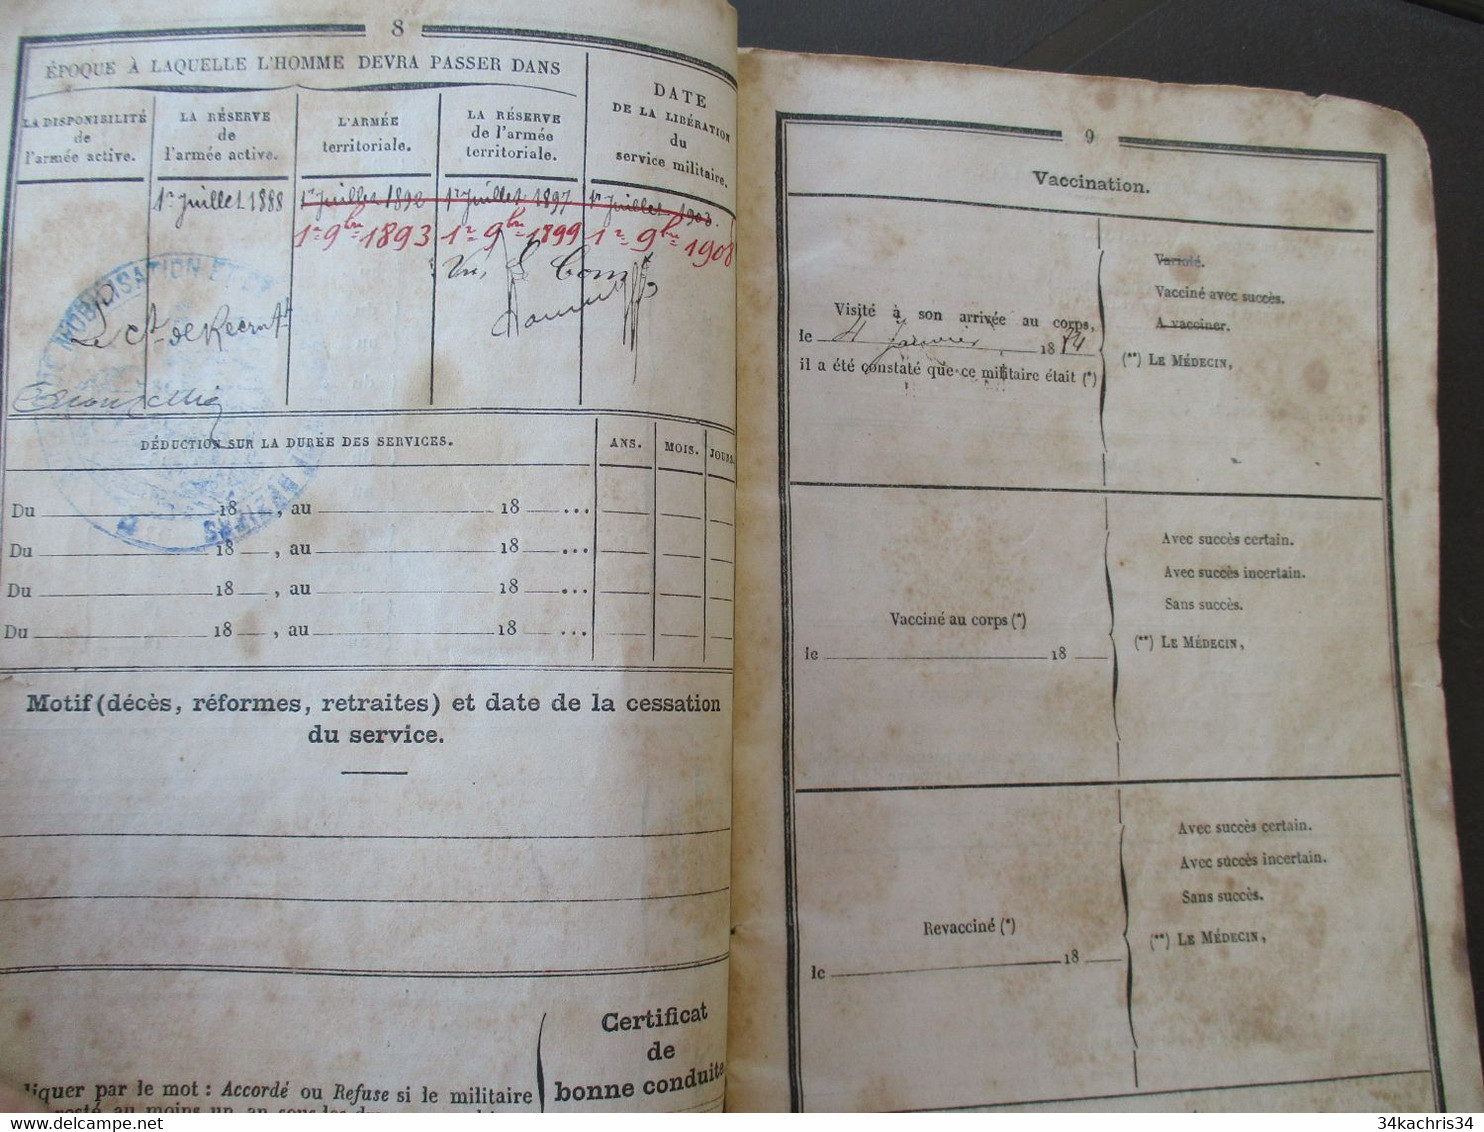 8
ÉPOQUE À LAQUELLE L'HOMME DEVRA PASSER DANS
LA DISPONIBILITÉ
de
l'armée active.
LA RÉSERVE
de
l'armée active.
L'ARMÉE
territoriale.
LA RÉSERVE
de l'armée
territoriale.
DATE
DE LA LIBÉRATION
du
service militaire.
1er Juillet 1888
1er Juillet 1892
1er Juillet 1897
1er Juillet 1903.
1er 9bre 1893
1er 9bre 1899
1er 9bre 1908
Le Ct de Recrut
MOBILISATION ET DE
BÉZIERS
DÉDUCTION SUR LA DURÉE DES SERVICES.
ANS.
MOIS.
JOURS.
Du 18 , au 18 ...
Du 18 , au 18 ...
Du 18 , au 18 ...
Du 18 , au 18 ...
Motif (décès, réformes, retraites) et date de la cessation
du service.
Certificat
de
bonne conduite
iquer par le mot : Accordé ou Refuse si le militaire
resté au moins un an sous les
9
Vaccination.
Visité à son arrivée au corps,
le 4 Janvier , 1884
il a été constaté que ce militaire était (*)
Variolé.
Vacciné avec succès.
A vacciner.
(**) LE MÉDECIN,
Vacciné au corps (*)
le 18
Avec succès certain.
Avec succès incertain.
Sans succès.
(**) LE MÉDECIN,
Revacciné (*)
le 18
Avec succès certain.
Avec succès incertain.
Sans succès.
(**) LE MÉDECIN,
34kachris34